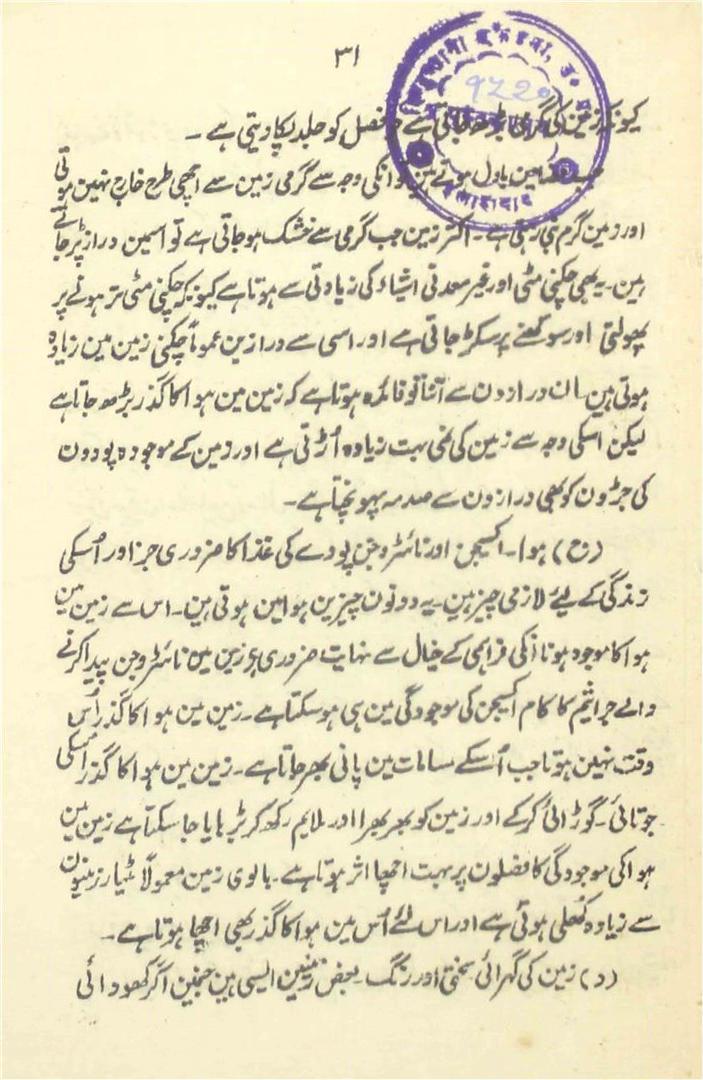 ۳۱
کیونکہ زمین کی گرمی بڑھ جاتی ہے فصل کو جلد پکا دیتی ہے ۔
جب بادل ہوتے ہین تو انکی وجہ سے گرمی زمین سے اچھی طرح خارج نہین ہوتی
اور زمین گرم ہی رہتی ہے ۔ اکثر زمین جب گرمی سے خشک ہو جاتی ہے تو اسمین دراز پڑ جاتے
ہین ۔ یہ بھی چکنی مٹی اور غیر معدنی اشیاء کی زیادتی سے ہوتا ہے کیونکہ چکنی مٹی تر ہونے پر
پھولتی اور سوکھنے پر سکڑ جاتی ہے اور اسی سے درازین عموماً چکنی زمین مین زیادہ
ہوتی ہین ان درازون سے اتنا تو فائدہ ہوتا ہے کہ زمین مین ہوا کا گذر بڑھ جاتا ہے
لیکن اسکی وجہ سے زمین کی نمی بہت زیادہ اُڑتی ہے اور زمین کے موجودہ پودون
کی جڑون کو بھی درازون سے صدمہ پہونچتا ہے ۔
(ج) ہوا ۔ اکسیجن اور نائٹروجن پودے کی غذا کا ضروری جز اور اُسکی
زندگی کے لیئے لازمی چیز ہین ۔ یہ دونون چیزین ہوا مین ہوتی ہین ۔ اس سے زمین مین
ہوا کا موجود ہونا انکی فراہمی کے خیال سے نہایت ضروری ہے زمین مین نائٹروجن پیدا کرنے
والے جراثیم کا کام اکسیجن کی موجودگی مین ہی ہو سکتا ہے ۔ زمین مین ہوا کا گذر اُس
وقت نہین ہوتا جب اُسکے مسامات مین پانی بھر جاتا ہے ۔ زمین مین ہوا کا گذر اُسکی
جوتائی ۔ گوڑائی کرکے اور زمین کو بھر بھرا اور ملایم رکھ کر بڑہایا جا سکتا ہے زمین مین
ہوا کی موجودگی کا فصلون پر بہت اچھا اثر ہوتا ہے ۔ بالوی زمین معمولاً مٹیار زمینون
سے زیادہ کھلی ہوئی ہے اور اس لئے اُس مین ہوا کا گذر بھی اچھا ہوتا ہے ۔
(د) زمین کی گہرائی سختی اور رنگ ۔ بعض زمینین ایسی ہین جنمین اگر کھودائی